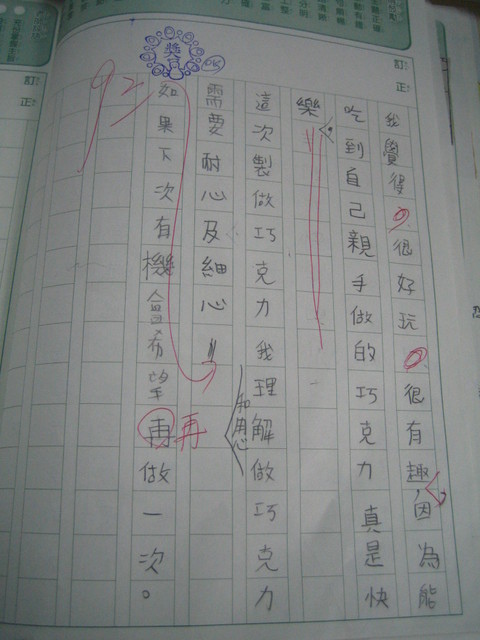 我覺得很好玩很有趣,因為能
吃到自己親手做的巧克力真是快
樂。
這次製做巧克力我理解做巧克力
和用心
需要耐心及細心
如果下次有機會希望再做一次。
再
92
獎
訂:
正:
訂:
正: